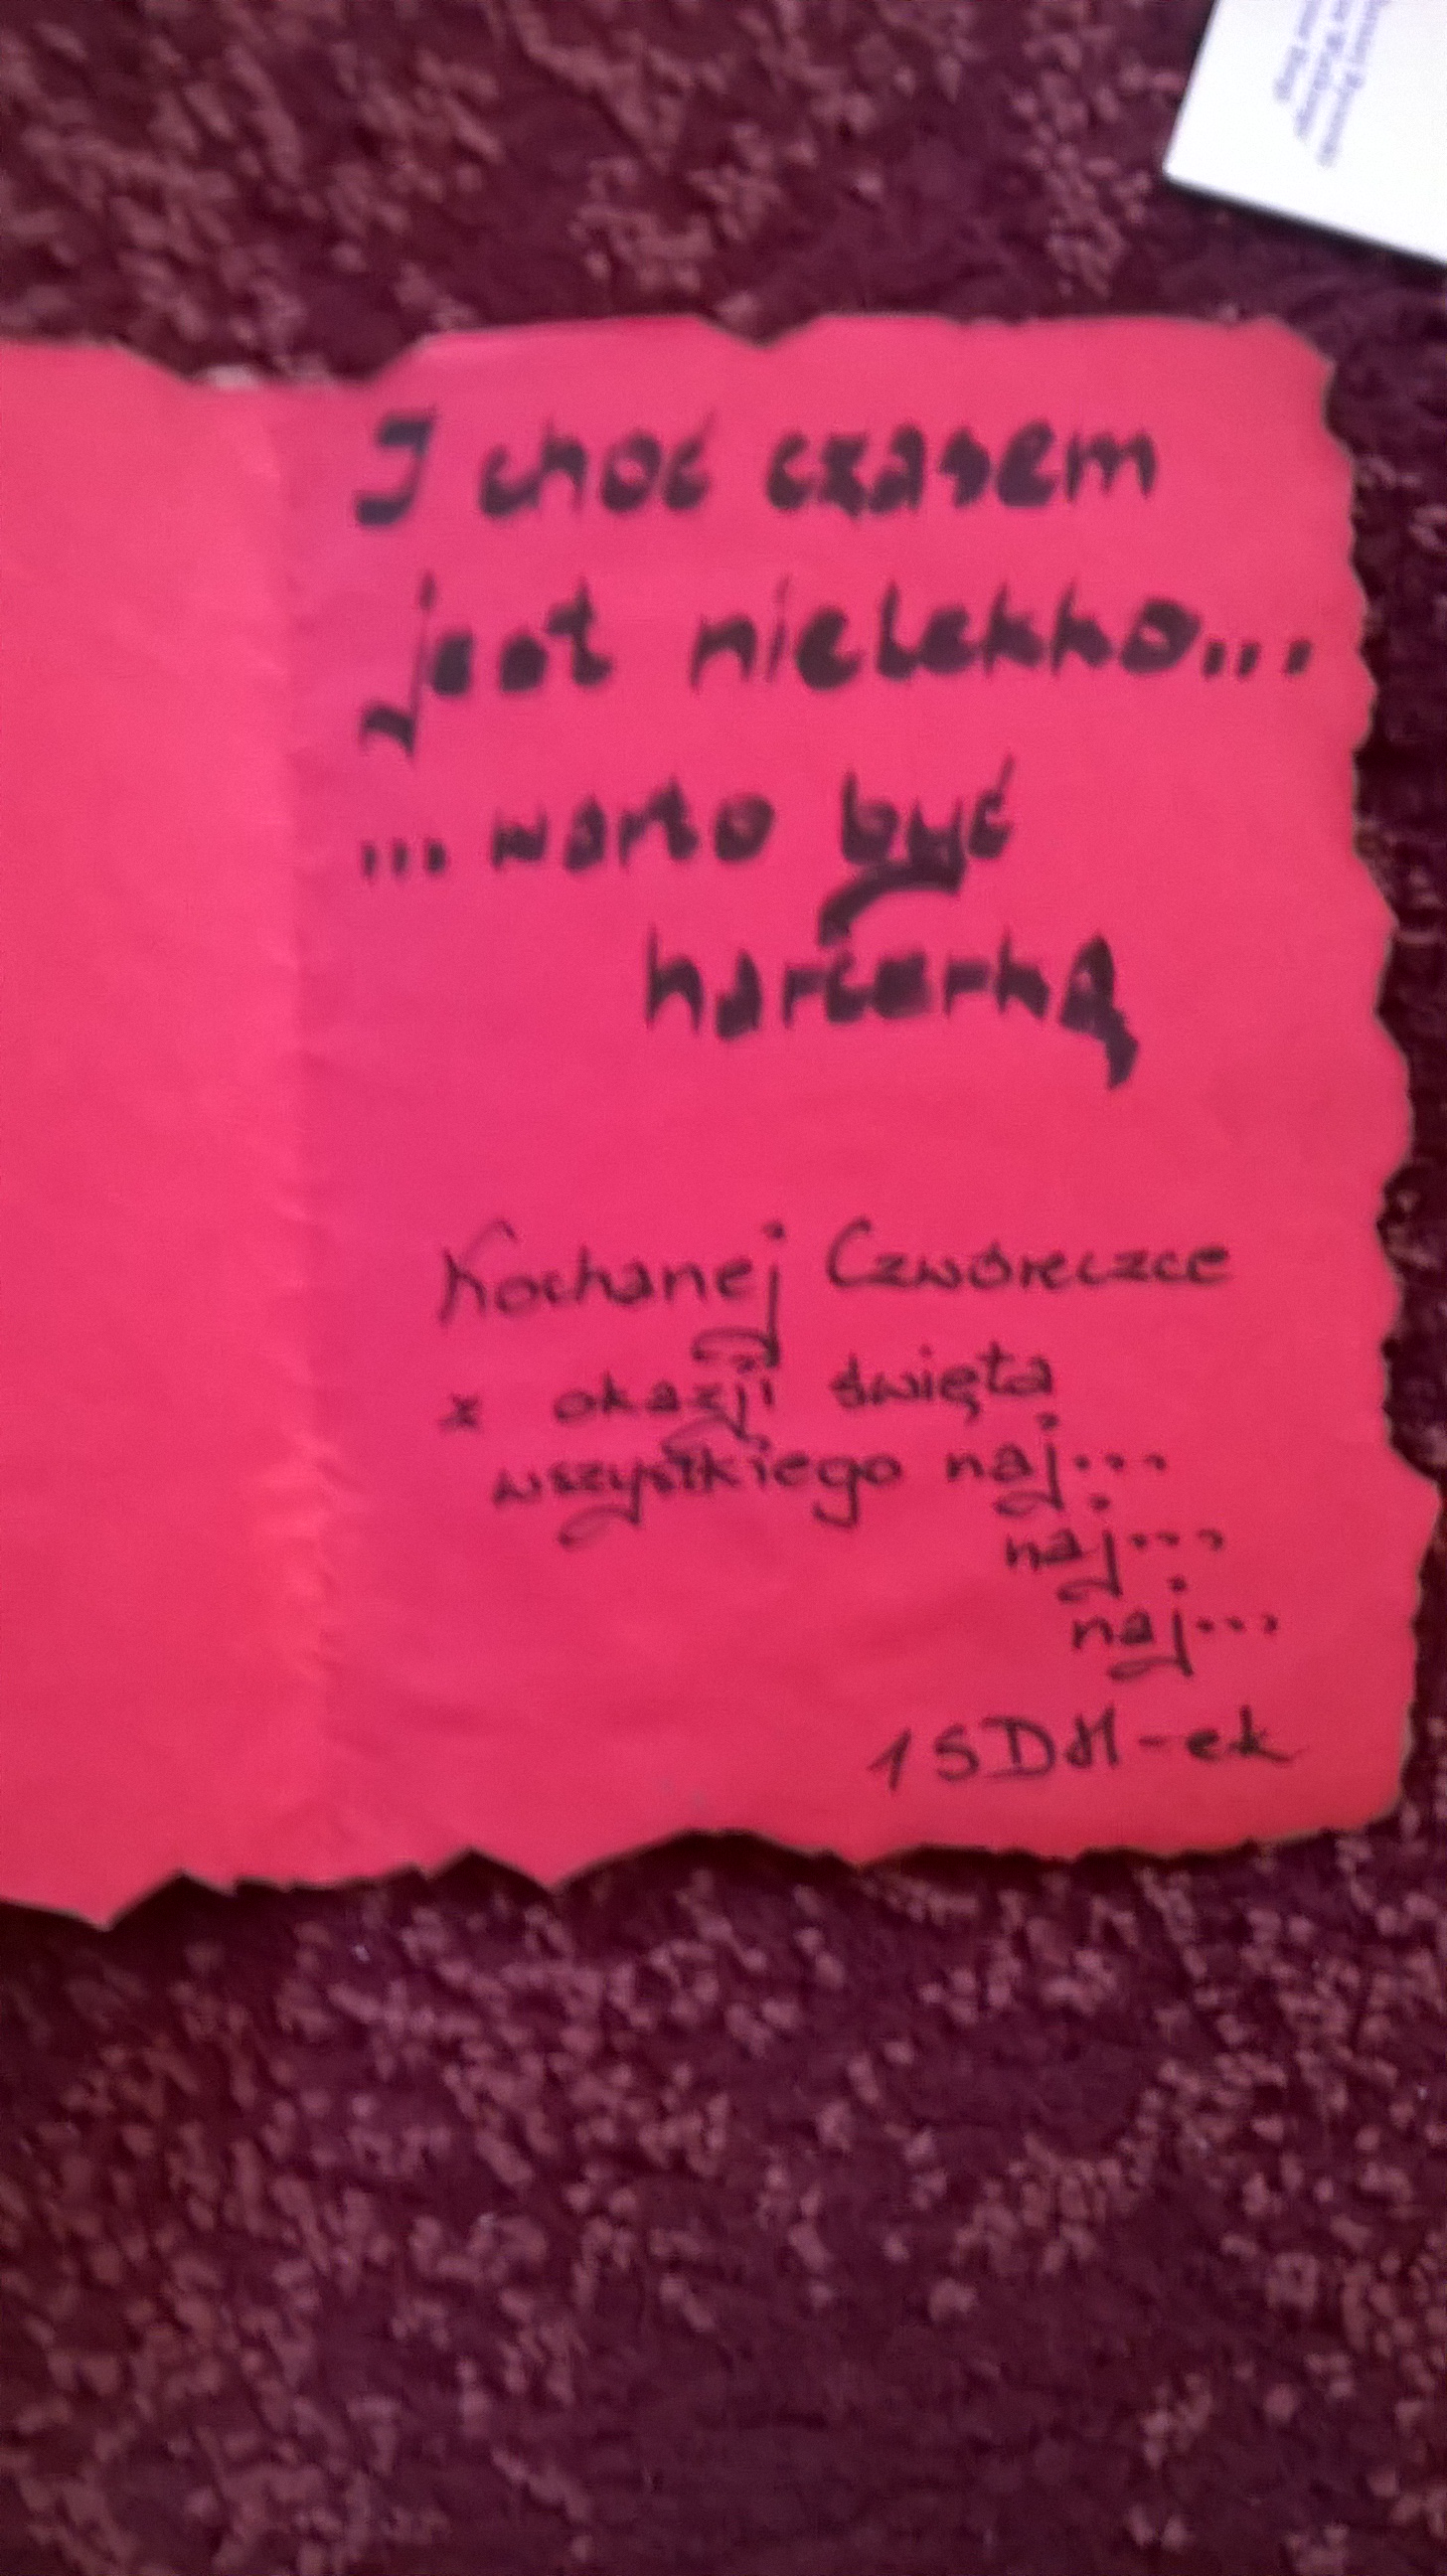 I choć czasem
jest nielekko...
... warto być
harcerką
Kochanej Czwóreczce
z okazji święta
wszystkiego naj...
naj...
naj...
1SDH-ek